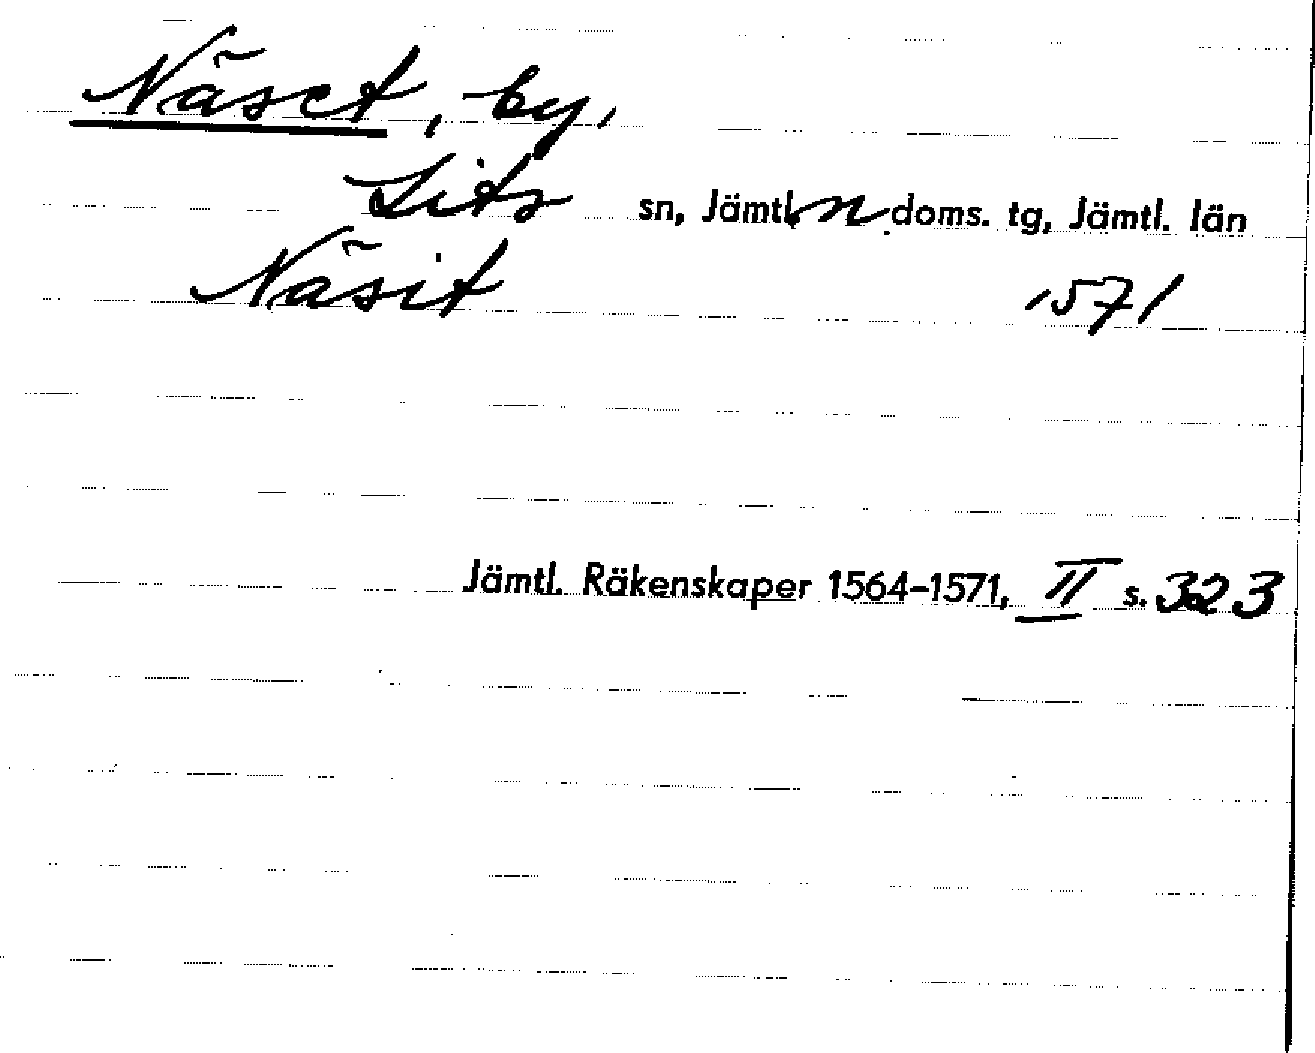 Näset, by,
Lits sn, Jämtl. n doms. tg, Jämtl. län
Näsit 1571
Jämtl. Räkenskaper 1564-1571, II s. 323